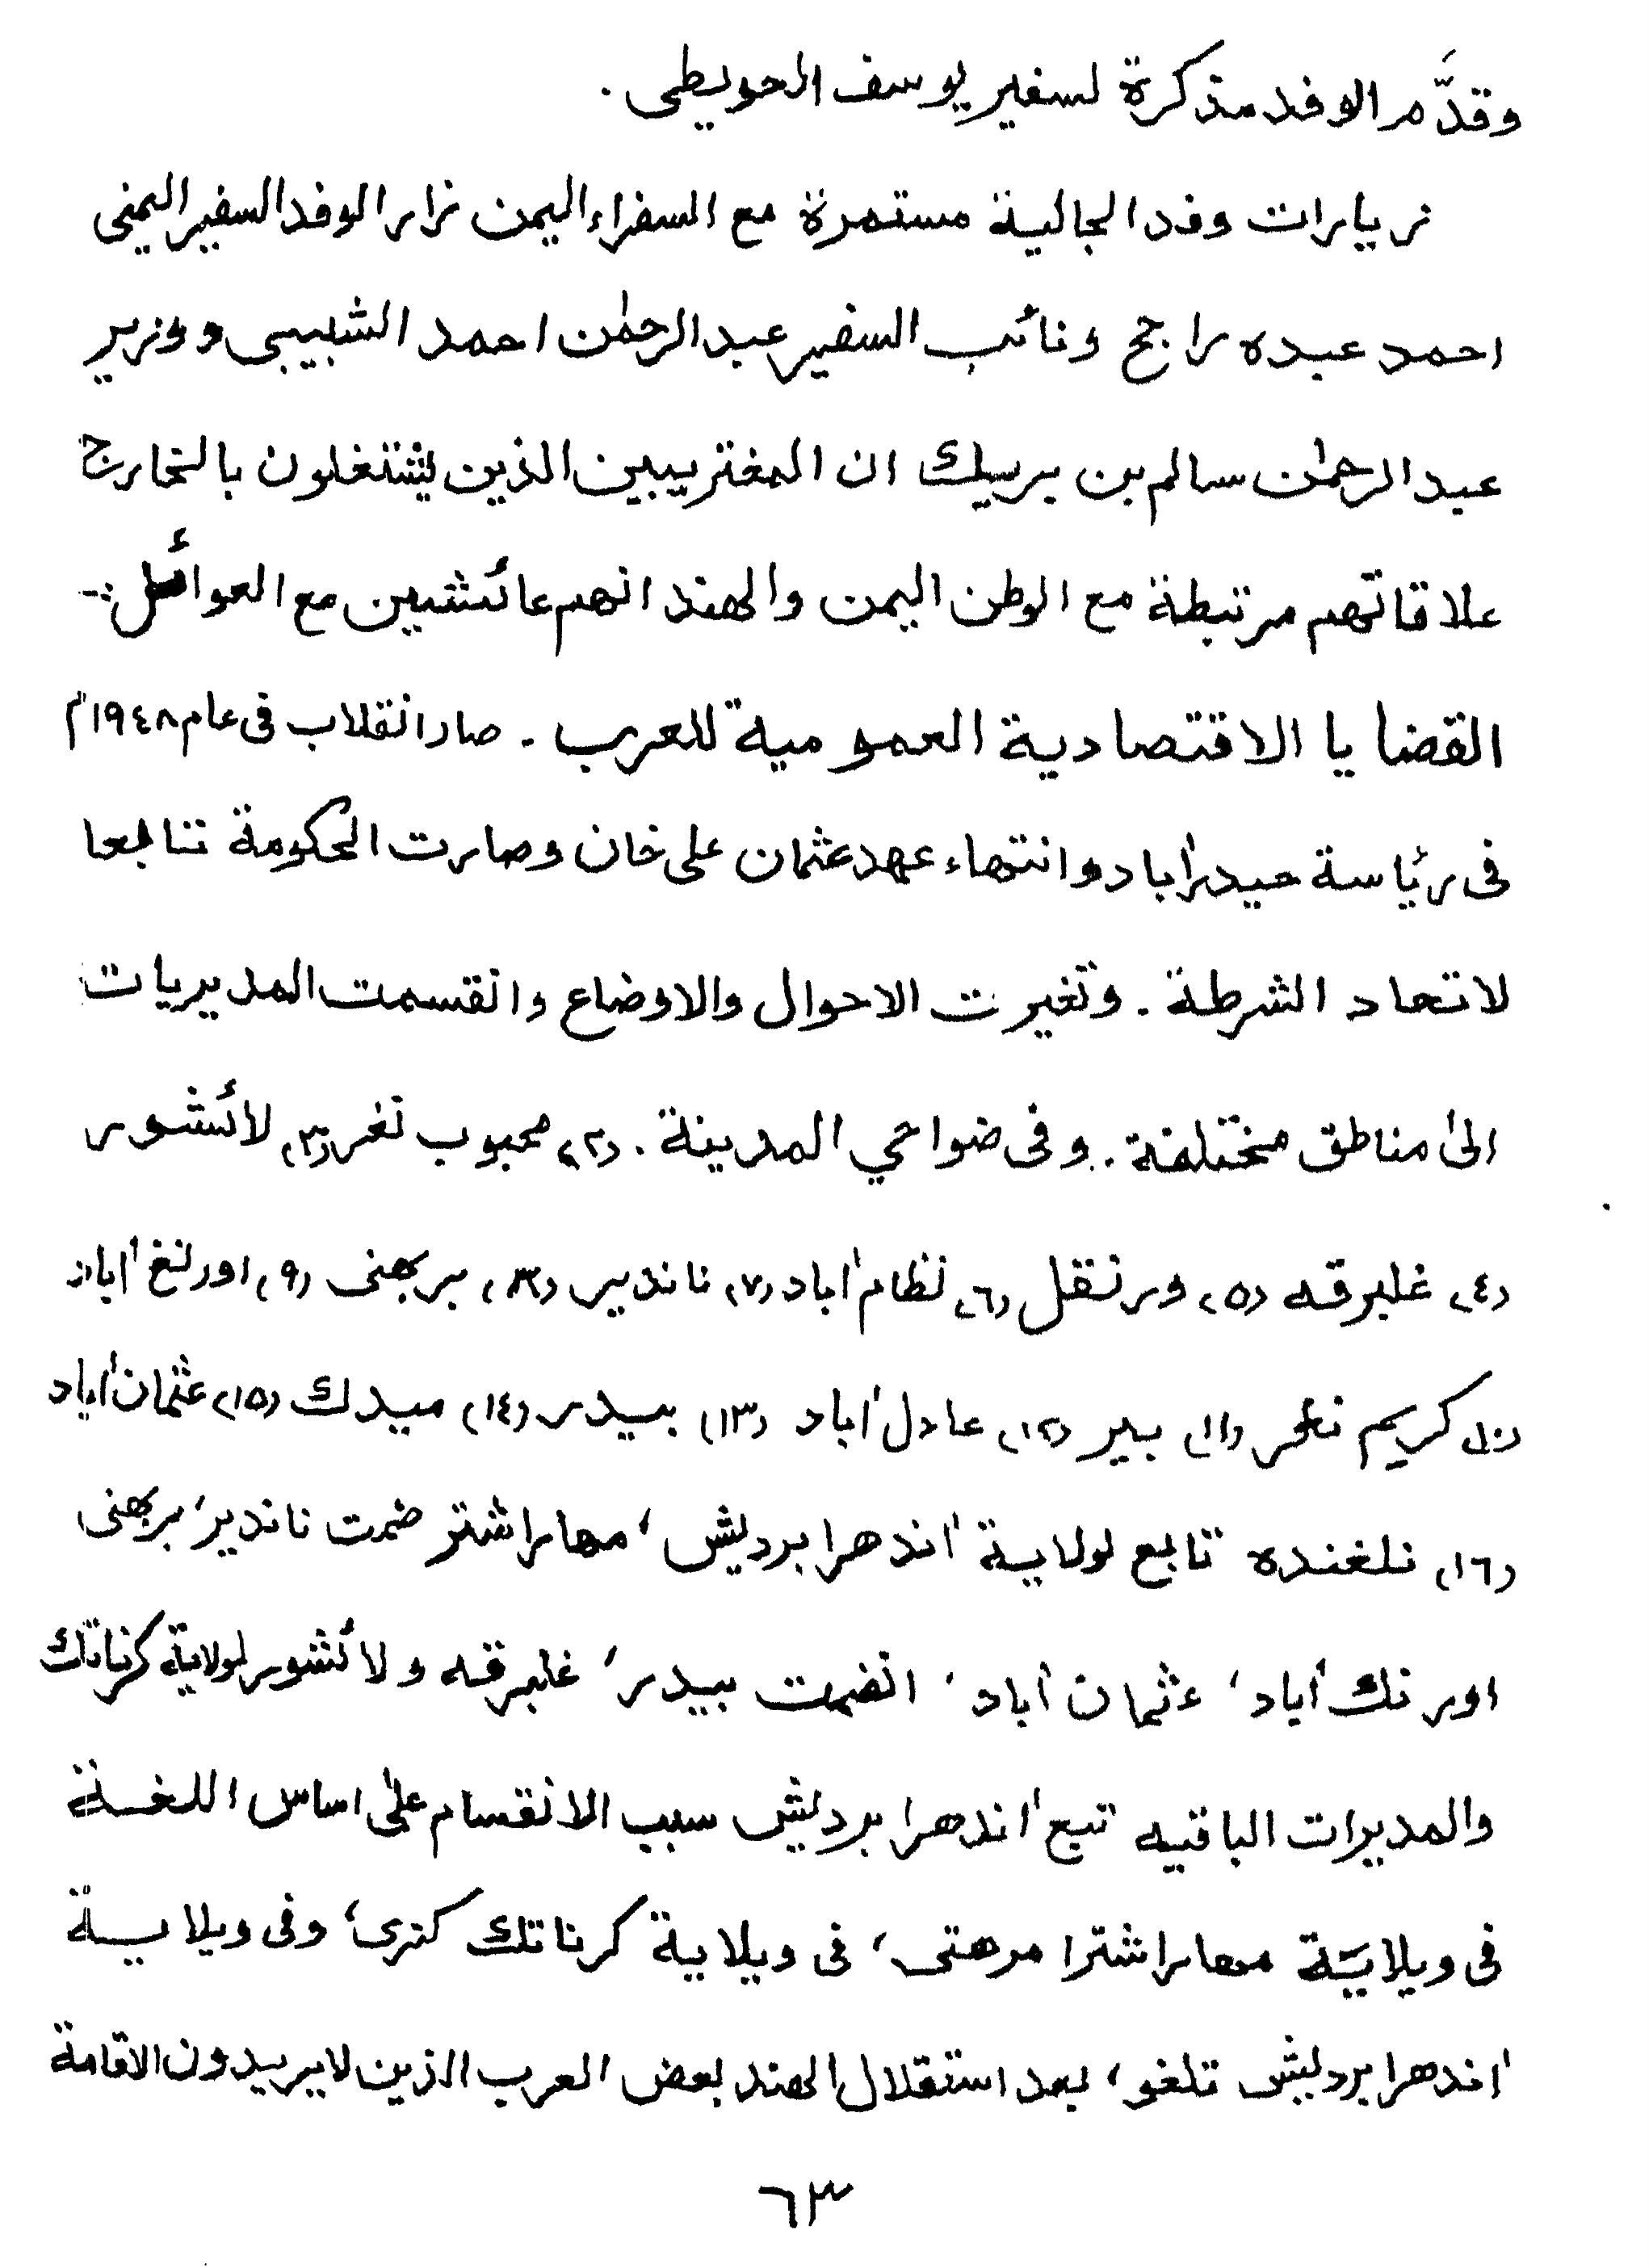 وقدَّم الوفد مذكرة لسفير يوسف الحويطى .
زيارات وفد الجالية مستمرة مع السفراء اليمن زار الوفد السفير اليمنى
احمد عبده راجح ونائب السفير عبدالرحمٰن احمد الشبيبى ووزير
عبدالرحمٰن سالم بن بريك ان المغتربيين الذين يشتغلون بالخارج
علاقاتهم مرتبطة مع الوطن اليمن والهند انهم عائشين مع العوائل :-
القضايا الاقتصادية العمومية للعرب . صار انقلاب فى عام ١٩٤٨م
فى رئاسة حيدرٰاباد وانتهاء عهد عثمان على خان وصارت الحكومة
لاتحاد الشرطة . وتغيرت الاحوال والاوضاع وانقسمت المديريات
الىٰ مناطق مختلفة . وفى ضواحي المدينة . (٢) محبوب نغر (٣) لائشور
(٤) غلبرقه (٥) ورنقل (٦) نظام اٰباد (٧) ناندير (٨) بربهنى (٩) اورنغ اٰباد
(١٠) كريم نغر (١١) بير (١٢) عادل اٰباد (١٣) بيدر (١٤) ميدك (١٥) عثمان اٰباد
(١٦) نلغنده تابع لولاية اٰندهرا برديش، مهاراشتر ضمت ناندير، بربهنى
اورنك اٰباد، عثمان اٰباد، انضمت بيدر، غلبرقه ولائشور لولاية كرناتك
والمديرات الباقيه تبع اٰندهرا برديش سبب الانقسام علىٰ اساس اللغة
فى ويلاية مهاراشترا مرهتى، فى ويلاية كرناتك كنرى، وفى ويلاية
اٰندهرا برديش تلغو، بعد استقلال الهند بعض العرب الذين لايريدون الاقامة
٦٣